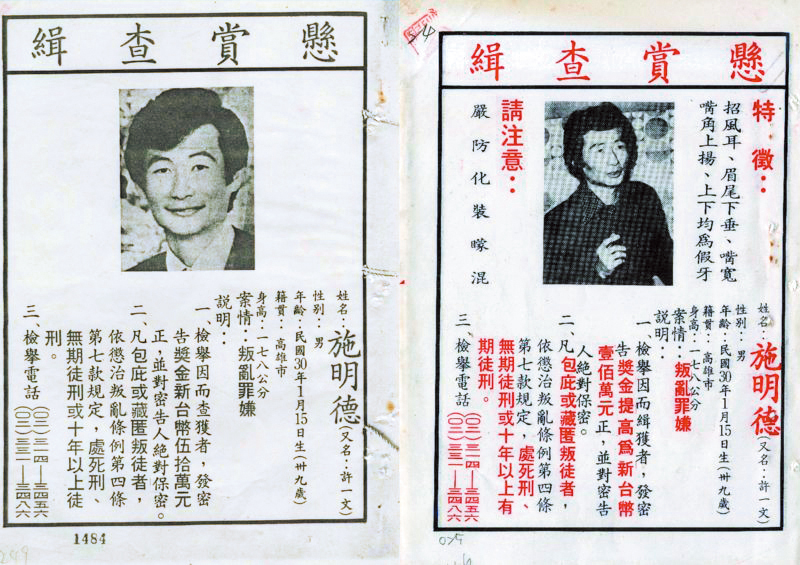 懸賞查緝
姓名：施明德(又名：許一文)
性別：男
年齡：民國30年1月15日生(卅九歲)
籍貫：高雄市
身高：一七八公分
案情：叛亂罪嫌
說明：
一、檢舉因而查獲者，發密
告獎金新台幣伍拾萬元
正，並對密告人絕對保密。
二、凡包庇或藏匿叛徒者，
依懲治叛亂條例第四條
第七款規定，處死刑、
無期徒刑或十年以上徒
刑。
三、檢舉電話(〇二)三一四—三四五六
(〇二)三三一—三四八六
1484
懸賞查緝
特徵：
招風耳、眉尾下垂、嘴寬
嘴角上揚、上下均為假牙
請注意：
嚴防化裝矇混
姓名：施明德(又名：許一文)
性別：男
年齡：民國30年1月15日生(卅九歲)
籍貫：高雄市
身高：一七八公分
案情：叛亂罪嫌
說明：
一、檢舉因而緝獲者，發密
告獎金提高為新台幣
壹佰萬元正，並對密告
人絕對保密。
二、凡包庇或藏匿叛徒者，
依懲治叛亂條例第四條
第七款規定，處死刑、
無期徒刑或十年以上有
期徒刑。
三、檢舉電話(〇二)三一四—三四五六
(〇二)三三一—三四八六